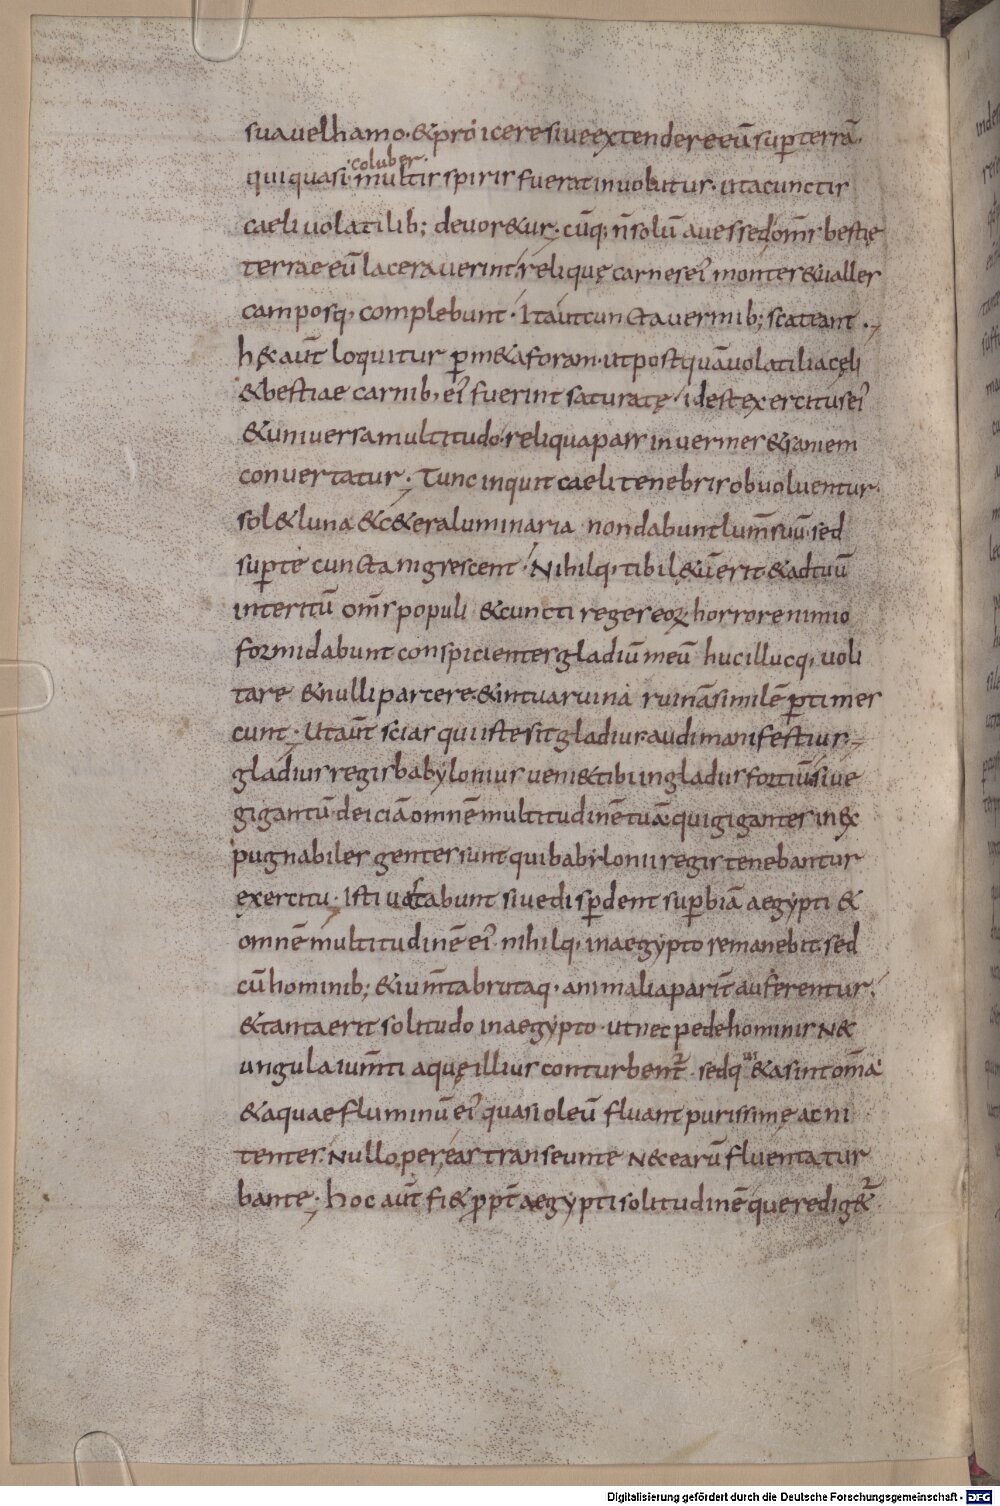 sua uel hamo · & proicere siue extendere eū sup̄ terrā ·
qui quasi coluber multis spiris fuerat inuolutus · ut a cunctis
caeli uolatilib; deuor&ur · cūq; ñ solū aues sed om̄s bestię
terrae eū lacerauerint · reliquę carnes ei' montes & ualles
camposq; complebunt · Ita ut cuncta uermib; scateant ·
hęc aut̄ loquitur p̄ m&aforan · ut postquā uolatilia cęli
& bestiae carnib; ei' fuerint saturatę · id est exercitus ei'
& uniuersa multitudo · reliqua pars in uermes & saniem
conuertatur · Tunc inquit caeli tenebris obuoluentur ·
sol & luna & c&era luminaria non dabunt lum̄ suū · sed
sup̄ te cuncta nigrescent · Nihilq; tibi l&ū erit & ad tuū
interitū om̄s populi & cuncti reges eoꝝ horrore nimio
formidabunt conspicientes gladiū meū huc illucq; uoli
tare & nulli parcere & in tua ruina ruinā similē p̄times
cunt · Ut aut̄ scias qui iste sit gladius audi manifestius ·
gladius regis babylonius ueni& tibi in gladiis fortiū siue
gigantū deiciā omnē multitudinē tuā · qui gigantes inex
pugnabiles gentes sunt qui babylonii regis tenebantur
exercitu · Isti uastabunt siue disp̄dent sup̄biā aegypti &
omnē multitudinē ei' nihilq; in aegypto remanebit sed
cū hominib; & ium̄ta brutaq; animalia parit̄ auferentur ·
& tanta erit solitudo in aegypto · ut nec pede hominis nec
ungula ium̄ti aquę illius conturbent̄ · sed q'uis & a sint om̄a
& aquae fluminū ei' quasi oleū fluant purissimę ac ni
tentes · Nullo per eas transeunte nec earū fluenta tur
bante · hoc aut̄ fi& ꝓpt̄ aegypti solitudinē que redig&̄
Digitalisierung gefördert durch die Deutsche Forschungsgemeinschaft - DFG